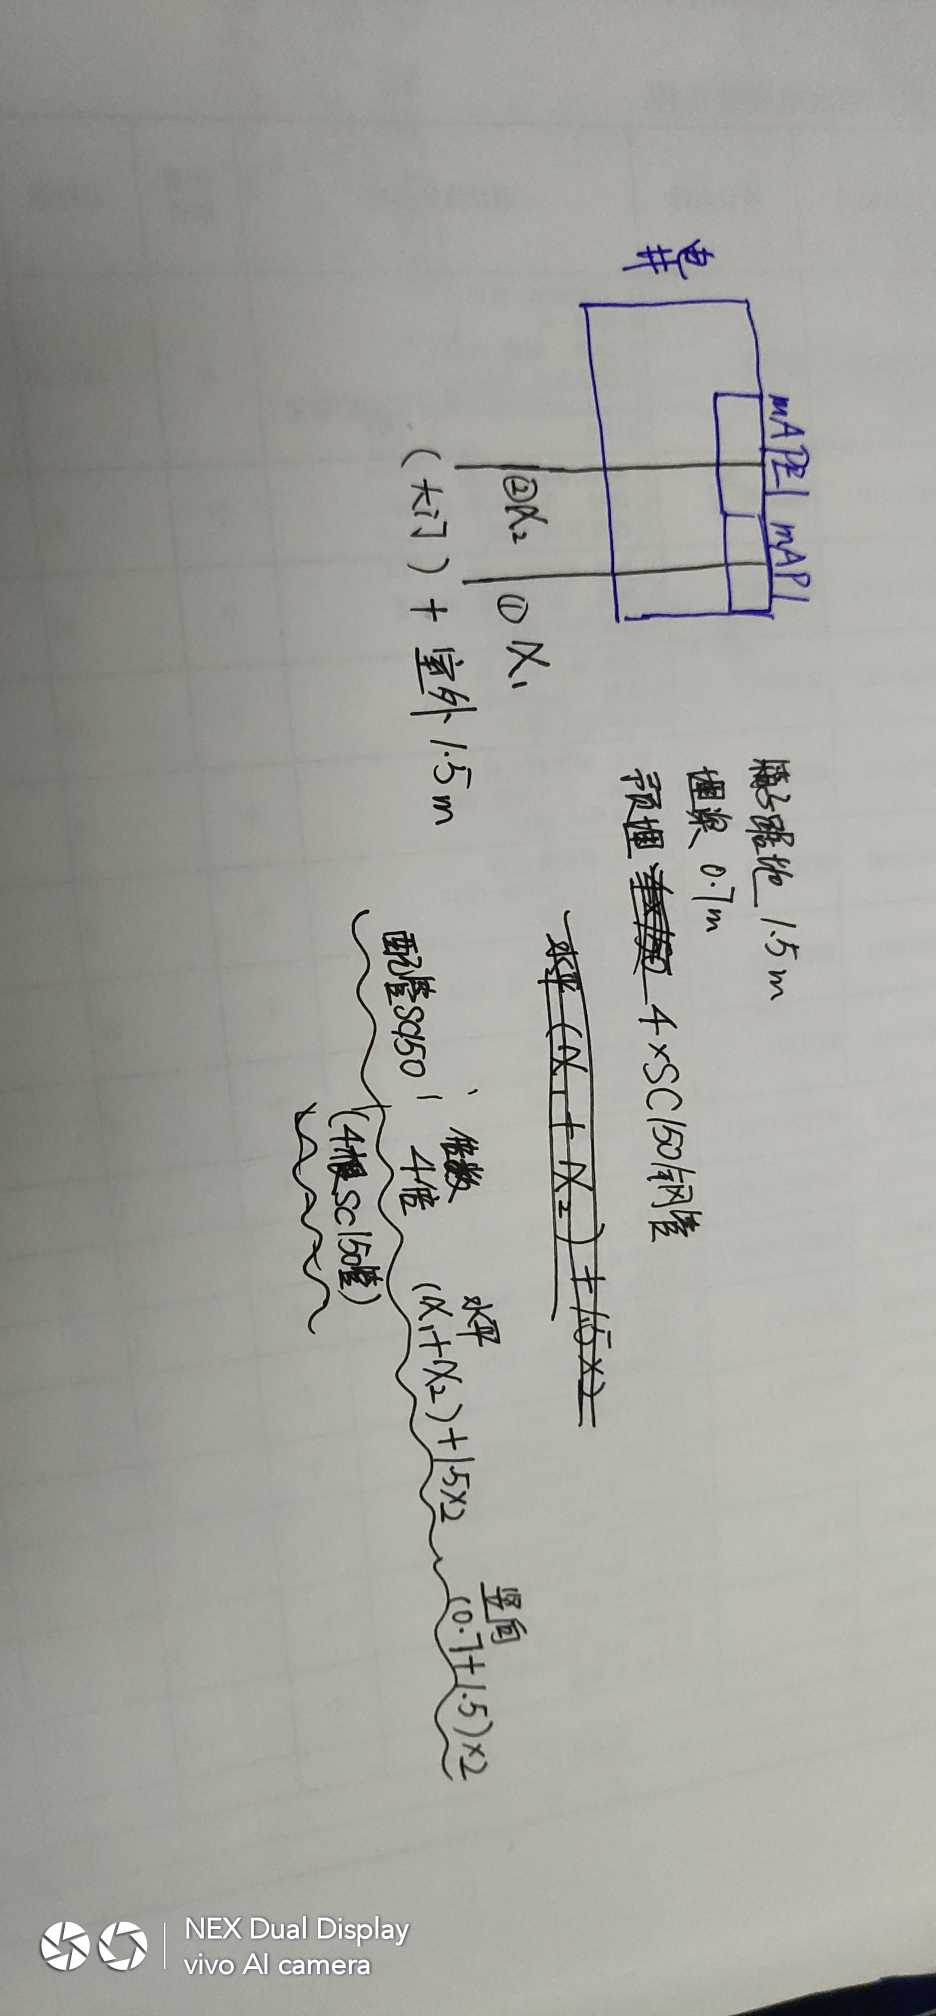 电井
mAPE1 mAP1
②X₂ ① X₁
(大门) + 室外1.5m
箱子距地 1.5m
埋深 0.7m
预埋 4×SC150钢管
水平(X₁+X₂)+1.5×2
倍数 水平 竖向
配管SC150; 4倍 (X₁+X₂)+1.5×2 (0.7+1.5)×2
(4根SC150管)
NEX Dual Display
vivo AI camera